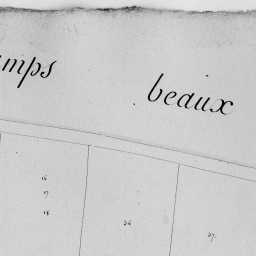 amps
beaux
16
17
18
26
27.